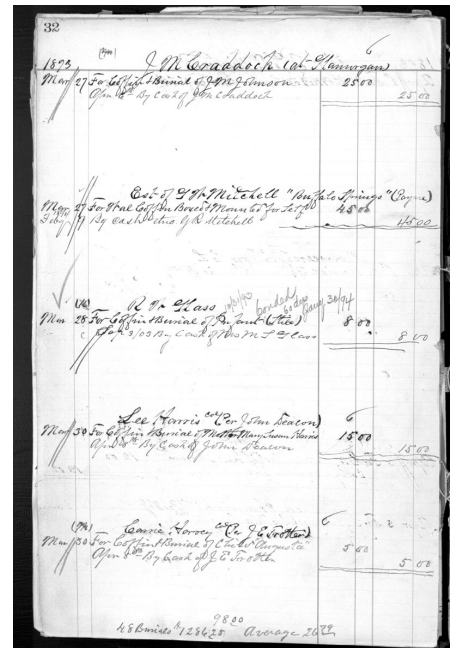 32
1893, J M Craddock (at Glamorgan) 6
Mar 27 For Coffin & Burial of J M Johnson 25 00
Apr By Cash of J M Craddock 25 00
Est of Mitchell "Buffalo Springs" (Payne)
Mar 27 For Wal Coffin Boxed & Mounted for Self 45 00
By Cash Mitchell 45 00
R W Glass bonded 60 days Aug 30/94
Mar 28 For Coffin & Burial of Infant 8 00
3/03 By Cash of Mrs M L Glass 8 00
Lee Harris col (Per John Deacon) 6
Mar 30 For Coffin & Burial of Mother Mary Susan Harris 15 00
Apr By Cash of John Deacon 15 00
Carrie Harvey col (Per J E Trotter) 6
Mar 30 For Coffin & Burial of Child "Augusta" 5 00
Apr By Cash of J E Trotter 5 00
98 00
48 Burials 1286 25 Average 26 79